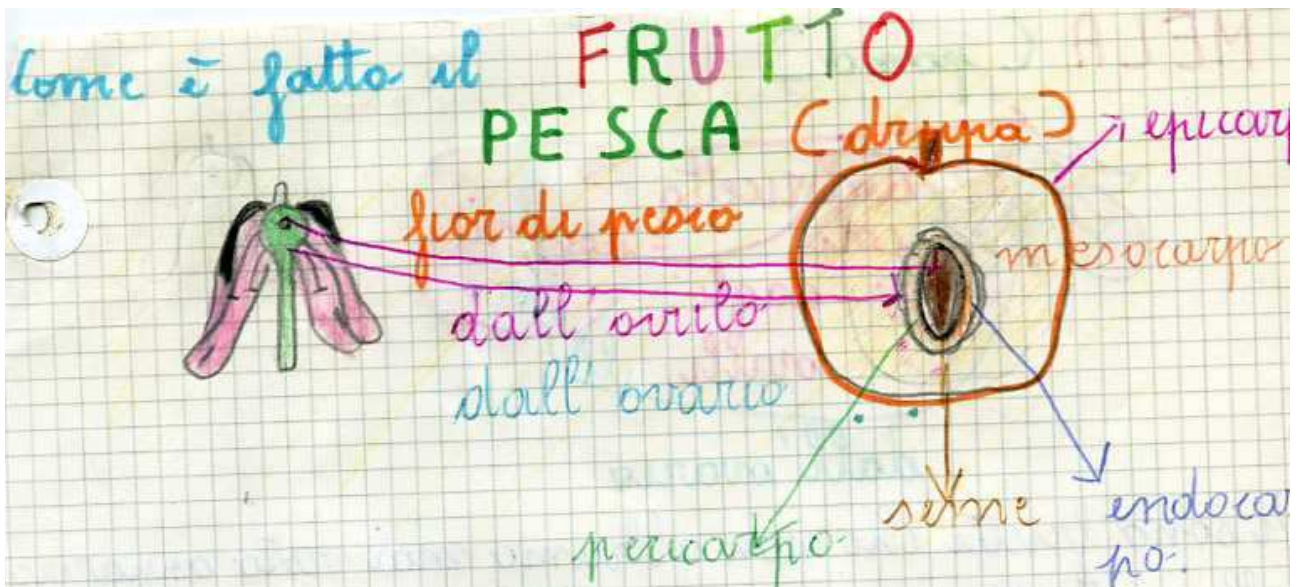 Come è fatto il FRUTTO
PESCA (drupa)
epicarp
fior di pesco
mesocarpo
dall'ovulo
dall'ovario
seme
endocar
po.
pericarpo